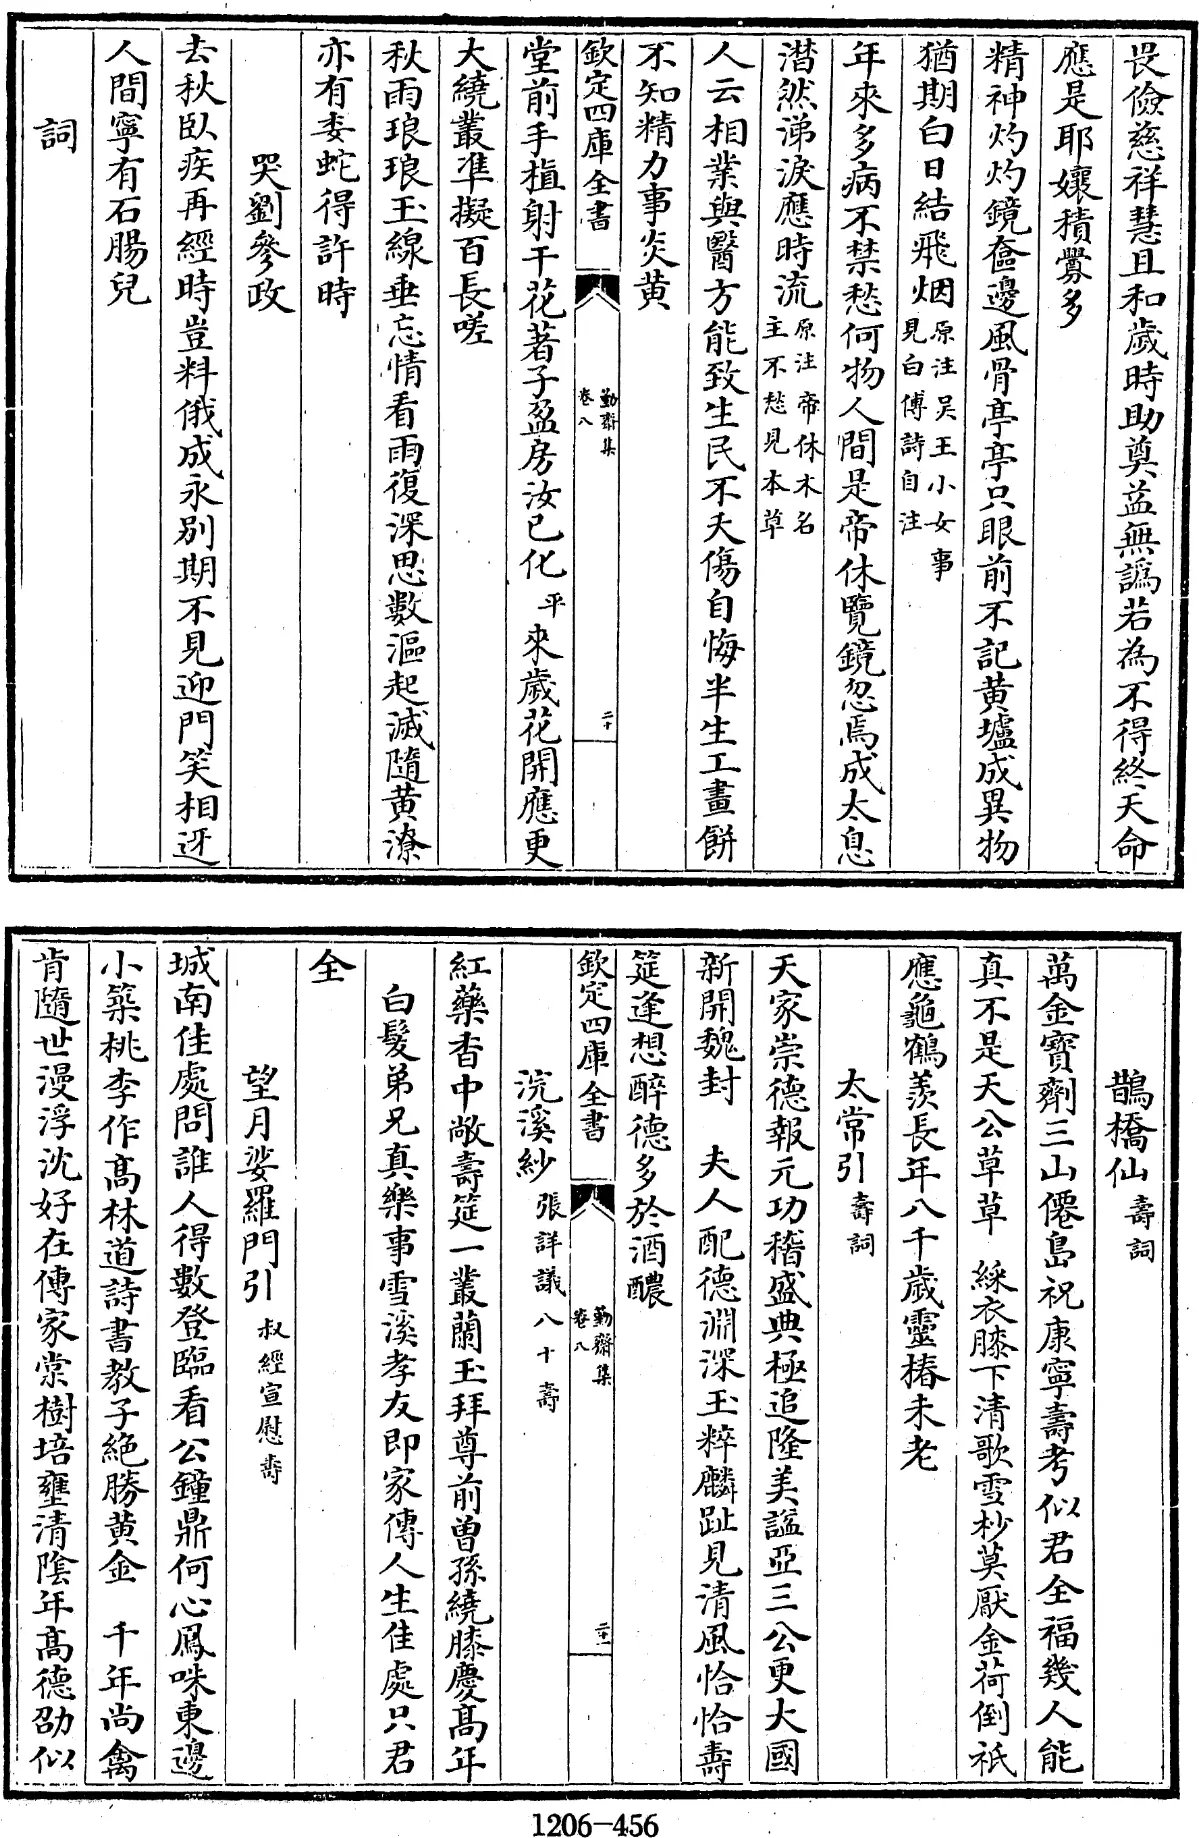 畏儉慈祥慧且和歲時助奠益無譌若為不得終天命
應是耶孃積釁多
精神灼灼鏡奩邊風骨亭亭只眼前不記黄壚成異物
猶期白日結飛烟原注吴王小女事見白傅詩自注
年來多病不禁愁何物人間是帝休覽鏡忽焉成太息
潸然涕淚應時流原注帝休木名主不愁見本草
人云相業與醫方能致生民不夭傷自悔半生工畫餅
不知精力事炎黄
欽定四庫全書 勤齋集 卷八 二十
堂前手植射干花著子盈房汝已化平來歲花開應更
大繞叢準擬百長嗟
秋雨琅琅玉線垂忘情看雨復深思數漚起滅隨黄潦
亦有委蛇得許時
哭劉參政
去秋臥疾再經時豈料俄成永别期不見迎門笑相迓
人間寧有石腸兒
詞
鵲橋仙壽詞
萬金寶劑三山僊島祝康寧壽考似君全福幾人能
真不是天公草草 綵衣膝下清歌雪杪莫厭金荷倒祇
應龜鶴羡長年八千歲靈椿未老
太常引壽詞
天家崇德報元功稽盛典極追隆美謚亞三公更大國
新開魏封 夫人配德淵深玉粹麟趾見清風恰恰壽
筵逢想醉德多於酒醲
欽定四庫全書 勤齋集 卷八 二十一
浣溪紗張詳議八十壽
紅藥香中敞壽筵一叢蘭玉拜尊前曾孫繞膝慶髙年
白髮弟兄真樂事雪溪孝友即家傳人生佳處只君
全
望月婆羅門引叔經宣慰壽
城南佳處問誰人得數登臨看公鐘鼎何心鳳咮東邊
小築桃李作髙林道詩書教子絶勝黄金 千年尚禽
肯隨世漫浮沈好在傳家棠樹培壅清隂年髙德劭似
1206-456